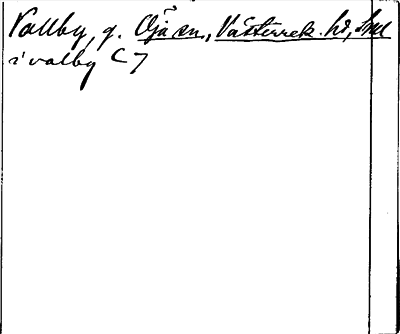 Vallby, g. Öja sn., Västerrek. hd, Sml
i valby C 7